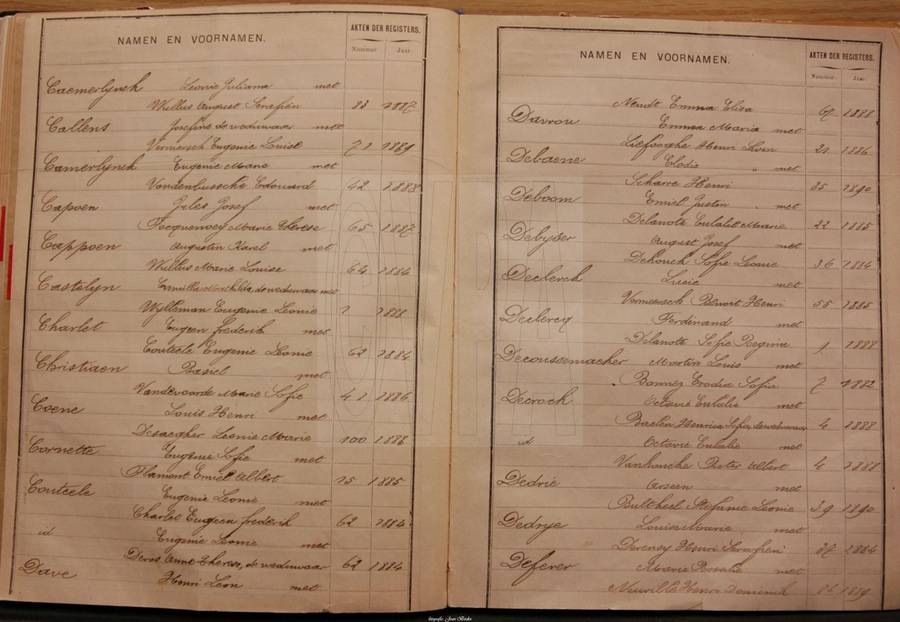 NAMEN EN VOORNAMEN. AKTEN DER REGISTERS.
Nummer Jaar
Caemerlynck Leonie Juliana met
Wullus August Serafien 23 1887
Callens Josefine de weduwaar met
Vermersch Eugenie Luise 72 1889
Camerlynck Eugenie Marie met
Vandenbussche Edouard 42 1888
Capoen Jules Josef met
Focquenoey Marie Therese 65 1887
Cappoen Augustin Karel met
Wullus Marie Louise 64 1884
Castelyn de weduwaar met
Wyltsman Eugenie Leonie 7 1886
Charlet Eugeen frederik met
Couteele Eugenie Leonie 62 1884
Christiaen Basiel met
Vandevoorde Marie Sofie 41 1886
Coene Louis Henri met
Desaegher Leonie Marie 100 1886
Cornette Eugenie Sofie met
Flament Emiel Albert 15 1885
Couteele Eugenie Leonie met
Charlet Eugeen frederik 62 1884
id Eugenie Leonie met
Deros Anne Therese, de weduwaar 62 1884
Dave Henri Leon met
NAMEN EN VOORNAMEN. AKTEN DER REGISTERS.
Nummer Jaar
Neudt Emma Elisa 67 1888
Davrou Emma Maria met
Liefooghe Henri Livin 21 1886
Debaene Elodie " met
Scharre Henri 35 1890
Deboom Emiel Justin " met
Delanote Eulalie Marie 22 1885
Debyser August Josef met
Dehouck Sofie Leonie 36 1884
Declerck Lucie met
Vermeesch Benoit Henri 55 1885
Declercq Ferdinand met
Delanote Sofie Regina 1 1888
Decoussemacher Martin Louis met
Bonnez Elodia Sofia 7 1882
Decrock Octavie Eulalie met
Baelen Henrica Sofia, de weduwaar 4 1888
id Octavie Eulalie met
Vanhoucke Pieter Albert 4 1888
Dedrie Arseen met
Bultheel Stefanie Leonie 39 1890
Dedrye Louise Marie met
Henri Serafien 37 1884
Deferer Marie Rosalie met
Neuville Henri Dominik 25 1889